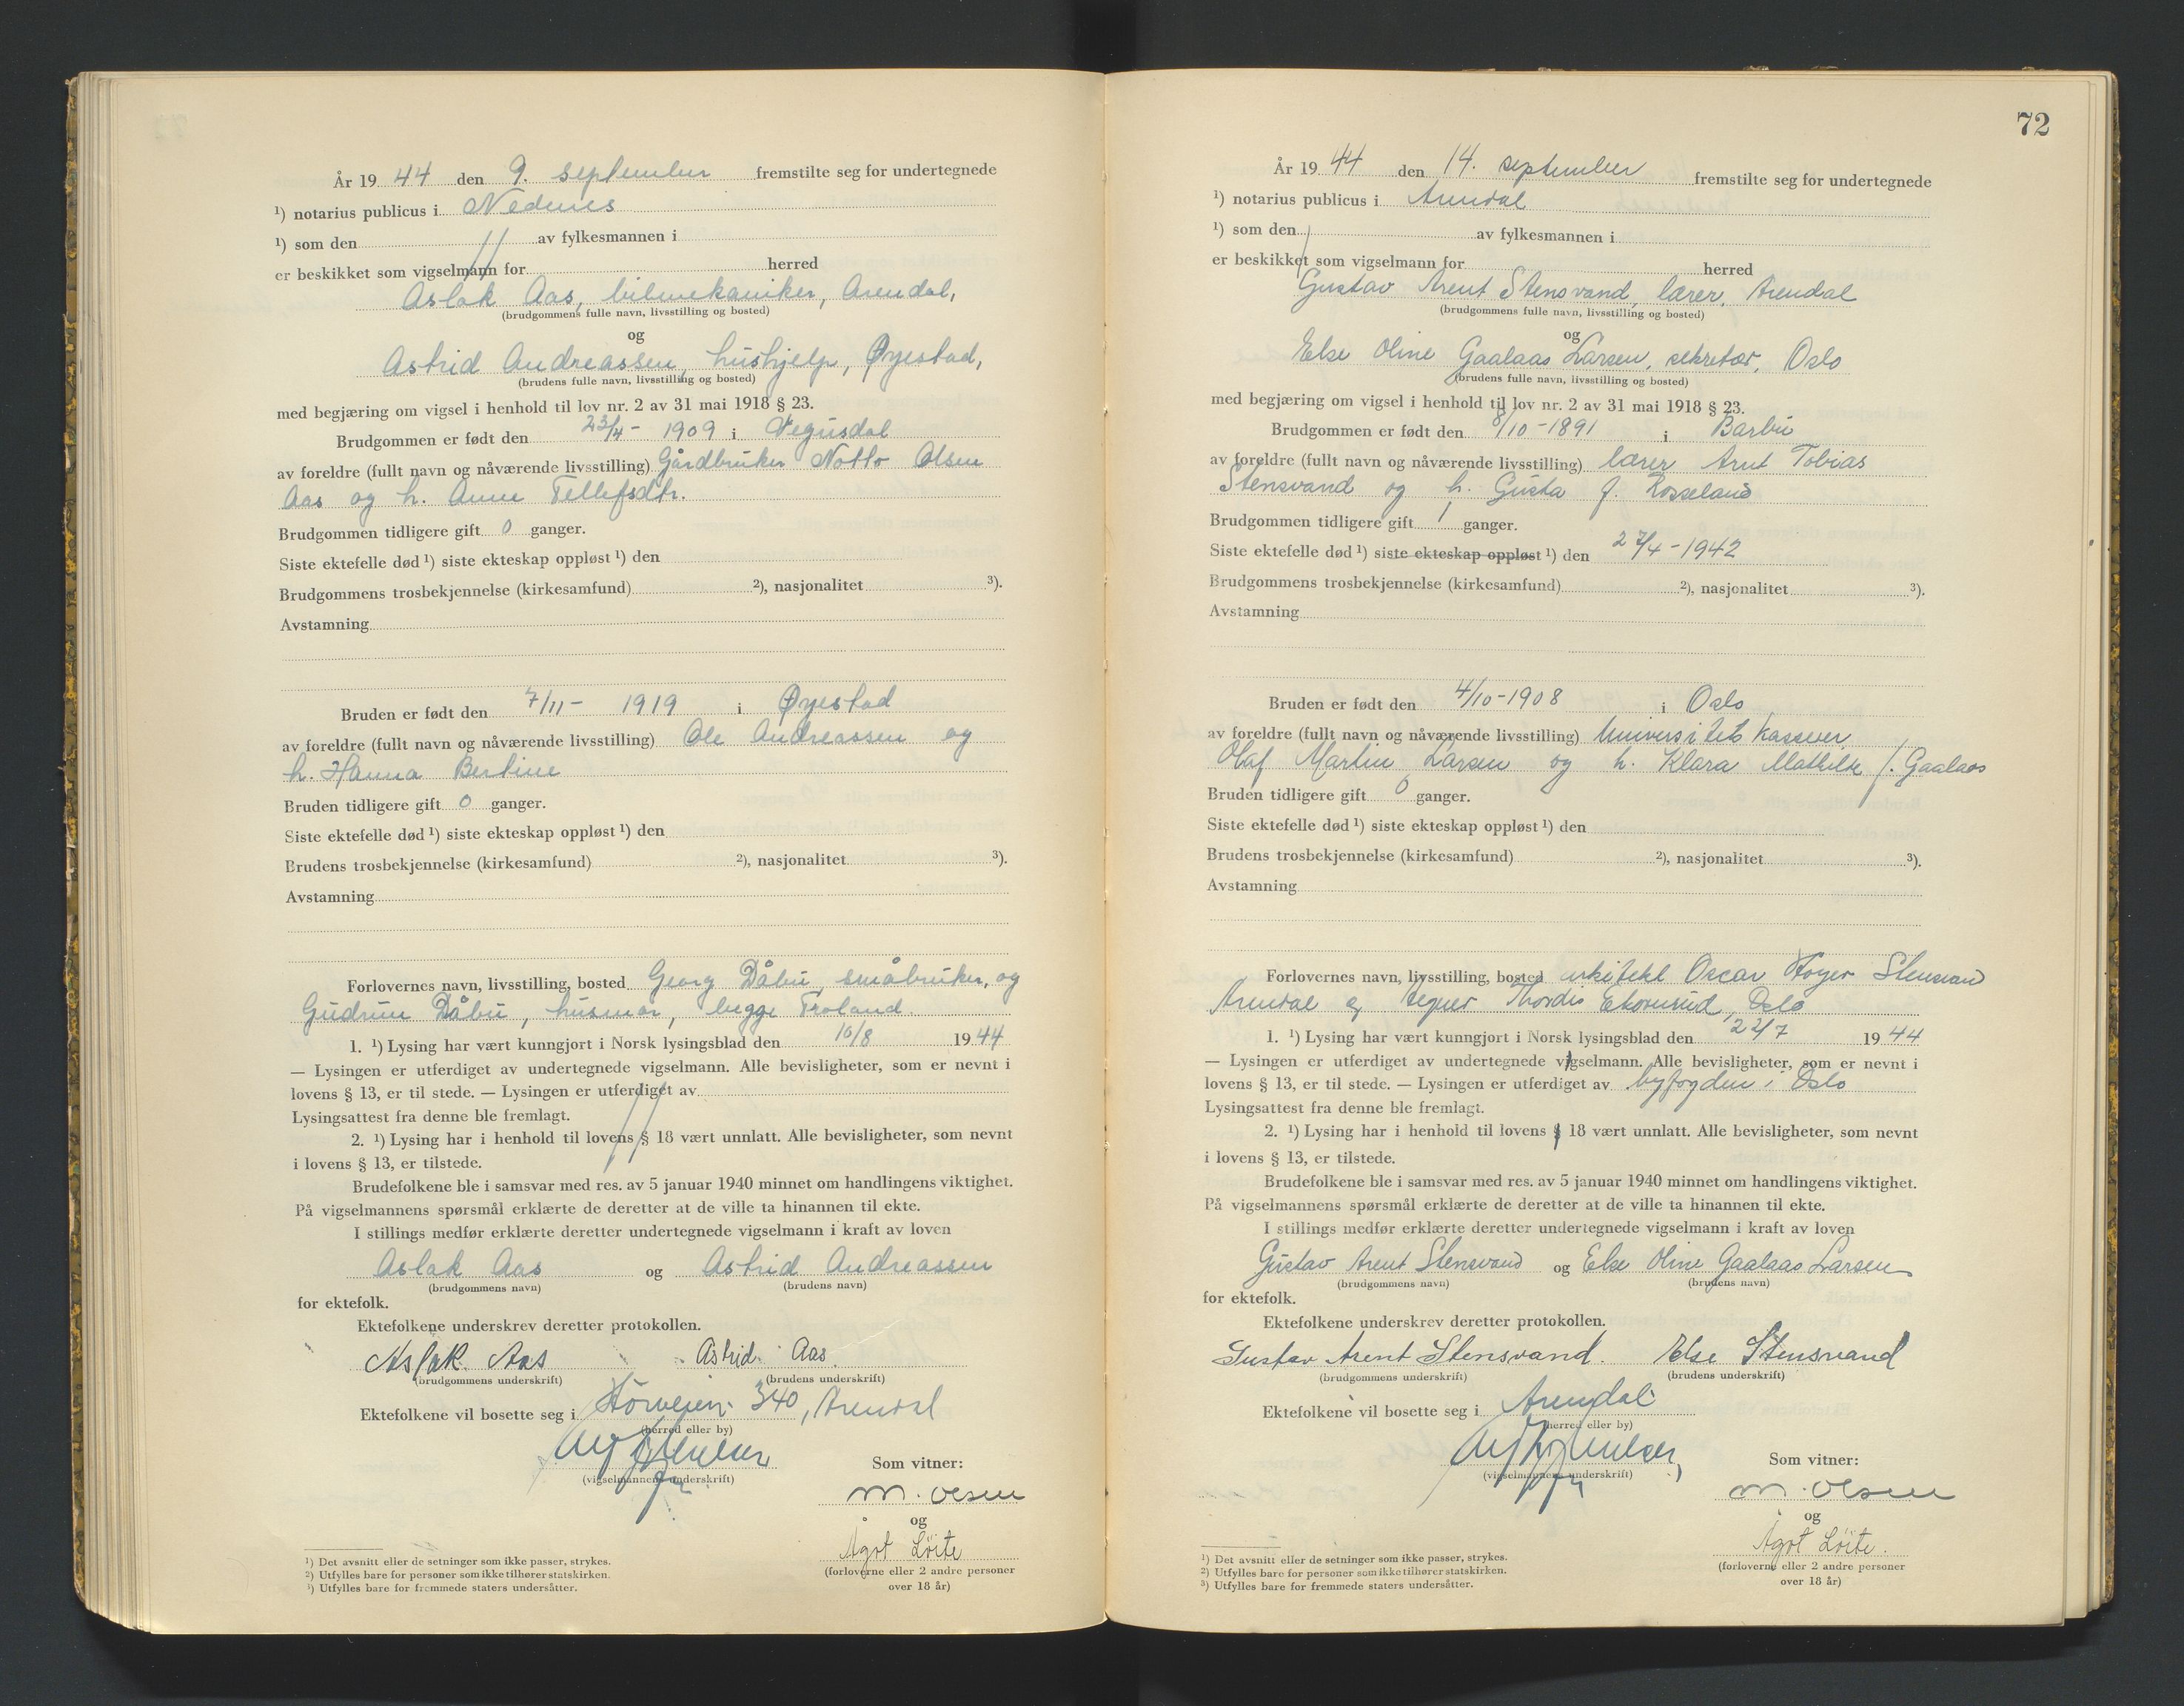 År 19 44 den 9. september fremstilte seg for undertegnede
¹) notarius publicus i Nedenes
¹) som den av fylkesmannen i
er beskikket som vigselmann for herred
Aslak Aas, bilmekaniker, Arendal,
(brudgommens fulle navn, livsstilling og bosted)
og
Astrid Andreassen, hushjelp, Øyestad,
(brudens fulle navn, livsstilling og bosted)
med begjæring om vigsel i henhold til lov nr. 2 av 31 mai 1918 § 23.
Brudgommen er født den 23/4 - 1909 i Vegusdal
av foreldre (fullt navn og nåværende livsstilling) Gårdbruker Notto Olsen
Aas og h. Anne Tellefsdtr.
Brudgommen tidligere gift 0 ganger.
Siste ektefelle død ¹) siste ekteskap oppløst ¹) den
Brudgommens trosbekjennelse (kirkesamfund) ²), nasjonalitet ³).
Avstamning
Bruden er født den 7/11 - 1919 i Øyestad
av foreldre (fullt navn og nåværende livsstilling) Ole Andreassen og
h. Hanna Bertine
Bruden tidligere gift 0 ganger.
Siste ektefelle død ¹) siste ekteskap oppløst ¹) den
Brudens trosbekjennelse (kirkesamfund) ²), nasjonalitet ³).
Avstamning
Forlovernes navn, livsstilling, bosted Georg Dåbu, småbruker, og
Gudrun Dåbu, husmor, begge Froland.
1. ¹) Lysing har vært kunngjort i Norsk lysingsblad den 10/8 19 44
— Lysingen er utferdiget av undertegnede vigselmann. Alle bevisligheter, som er nevnt i
lovens § 13, er til stede. — Lysingen er utferdiget av
Lysingsattest fra denne ble fremlagt.
2. ¹) Lysing har i henhold til lovens § 18 vært unnlatt. Alle bevisligheter, som nevnt
i lovens § 13, er tilstede.
Brudefolkene ble i samsvar med res. av 5 januar 1940 minnet om handlingens viktighet.
På vigselmannens spørsmål erklærte de deretter at de ville ta hinannen til ekte.
I stillings medfør erklærte deretter undertegnede vigselmann i kraft av loven
Aslak Aas og Astrid Andreassen
(brudgommens navn) (brudens navn)
for ektefolk.
Ektefolkene underskrev deretter protokollen.
Aslak Aas Astrid Aas.
(brudgommens underskrift) (brudens underskrift)
Ektefolkene vil bosette seg i 340, Arendal
(herred eller by)
(vigselmannens underskrift) Som vitner:
M. Olsen
og
Ågot Löite
(forloverne eller 2 andre personer
over 18 år)
¹) Det avsnitt eller de setninger som ikke passer, strykes.
²) Utfylles bare for personer som ikke tilhører statskirken.
³) Utfylles bare for fremmede staters undersåtter.
72
År 19 44 den 14. september fremstilte seg for undertegnede
¹) notarius publicus i Arendal
¹) som den av fylkesmannen i
er beskikket som vigselmann for herred
Gustav Arent Stensvand, lærer, Arendal
(brudgommens fulle navn, livsstilling og bosted)
og
Else Oline Gaalaas Larsen, sekretær, Oslo
(brudens fulle navn, livsstilling og bosted)
med begjæring om vigsel i henhold til lov nr. 2 av 31 mai 1918 § 23.
Brudgommen er født den 8/10 - 1891 i Barbu
av foreldre (fullt navn og nåværende livsstilling) lærer Arnt Tobias
Stensvand og h. Gusta f. Rosseland
Brudgommen tidligere gift 1 ganger.
Siste ektefelle død ¹) siste ekteskap oppløst ¹) den 27/4 - 1942
Brudgommens trosbekjennelse (kirkesamfund) ²), nasjonalitet ³).
Avstamning
Bruden er født den 4/10 - 1908 i Oslo
av foreldre (fullt navn og nåværende livsstilling) Universitets kasserer,
Olaf Martin Larsen og h. Klara Mathilde f. Gaalaas
Bruden tidligere gift 0 ganger.
Siste ektefelle død ¹) siste ekteskap oppløst ¹) den
Brudens trosbekjennelse (kirkesamfund) ²), nasjonalitet ³).
Avstamning
Forlovernes navn, livsstilling, bosted arkitekt Oscar Høyer Stensvand
Arendal og tegner Thordis Ekornrud, Oslo
1. ¹) Lysing har vært kunngjort i Norsk lysingsblad den 22/7 19 44
— Lysingen er utferdiget av undertegnede vigselmann. Alle bevisligheter, som er nevnt i
lovens § 13, er til stede. — Lysingen er utferdiget av byfogden i Oslo
Lysingsattest fra denne ble fremlagt.
2. ¹) Lysing har i henhold til lovens § 18 vært unnlatt. Alle bevisligheter, som nevnt
i lovens § 13, er tilstede.
Brudefolkene ble i samsvar med res. av 5 januar 1940 minnet om handlingens viktighet.
På vigselmannens spørsmål erklærte de deretter at de ville ta hinannen til ekte.
I stillings medfør erklærte deretter undertegnede vigselmann i kraft av loven
Gustav Arent Stensvand og Else Oline Gaalaas Larsen
(brudgommens navn) (brudens navn)
for ektefolk.
Ektefolkene underskrev deretter protokollen.
Gustav Arent Stensvand. Else Stensvand
(brudgommens underskrift) (brudens underskrift)
Ektefolkene vil bosette seg i Arendal
(herred eller by)
(vigselmannens underskrift) Som vitner:
M. Olsen
og
Ågot Löite.
(forloverne eller 2 andre personer
over 18 år)
¹) Det avsnitt eller de setninger som ikke passer, strykes.
²) Utfylles bare for personer som ikke tilhører statskirken.
³) Utfylles bare for fremmede staters undersåtter.